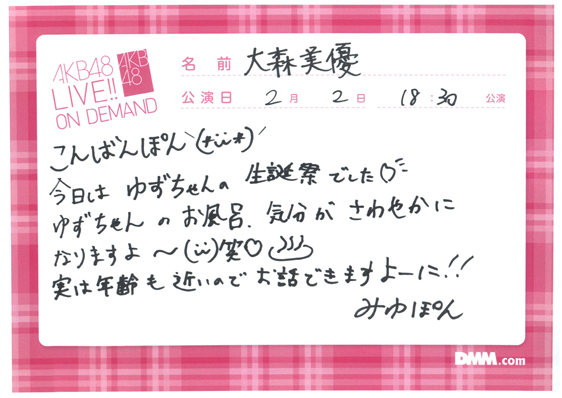 AKB48
LIVE!!
ON DEMAND
AKB
48
名 前 大森美優
公演日 2月 2日 18:30 公演
こんばんぽん\(*ii*)/
今日は ゆずちゃんの 生誕祭でした♡
ゆずちゃん のお風呂、気分が さわやかに
なりますよ 〜(ii)笑♡♨
実は年齢も近いので お話できますよーに!!
みゆぽん
DMM.com